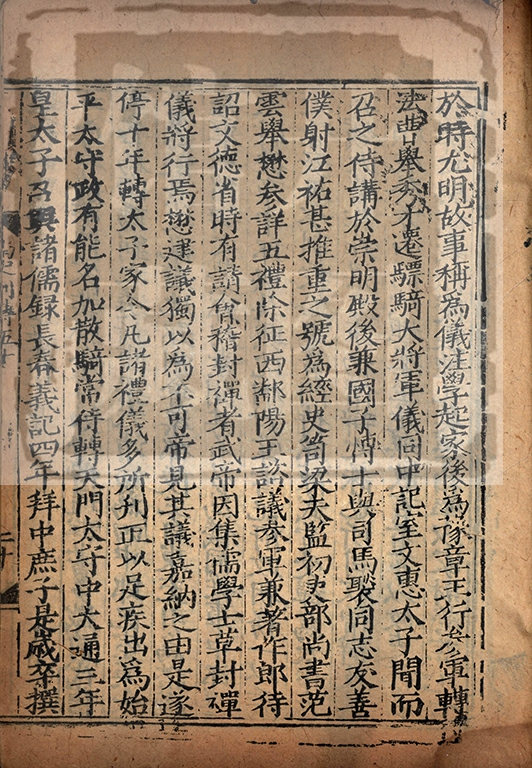 於時尤明故事稱為儀注學起家後為豫章王行參軍轉
法曹舉秀才遷驃騎大將軍儀同中記室文惠太子聞而
召之侍講於崇明殿後兼國子博士與司馬褧同志友善
僕射江祐甚推重之號為經史笥梁天監初吏部尚書范
雲舉懋參詳五禮除征西鄱陽王諮議參軍兼著作郎待
詔文德省時有請會稽封禪者武帝因集儒學士草封禪
儀將行焉懋建議獨以為不可帝見其議嘉納之由是遂
停十年轉太子家令凡諸禮儀多所刊正以足疾出為始
平太守政有能名加散騎常侍轉天門太守中大通三年
皇太子召與諸儒録長春義記四年拜中庶子是歲卒撰
二十